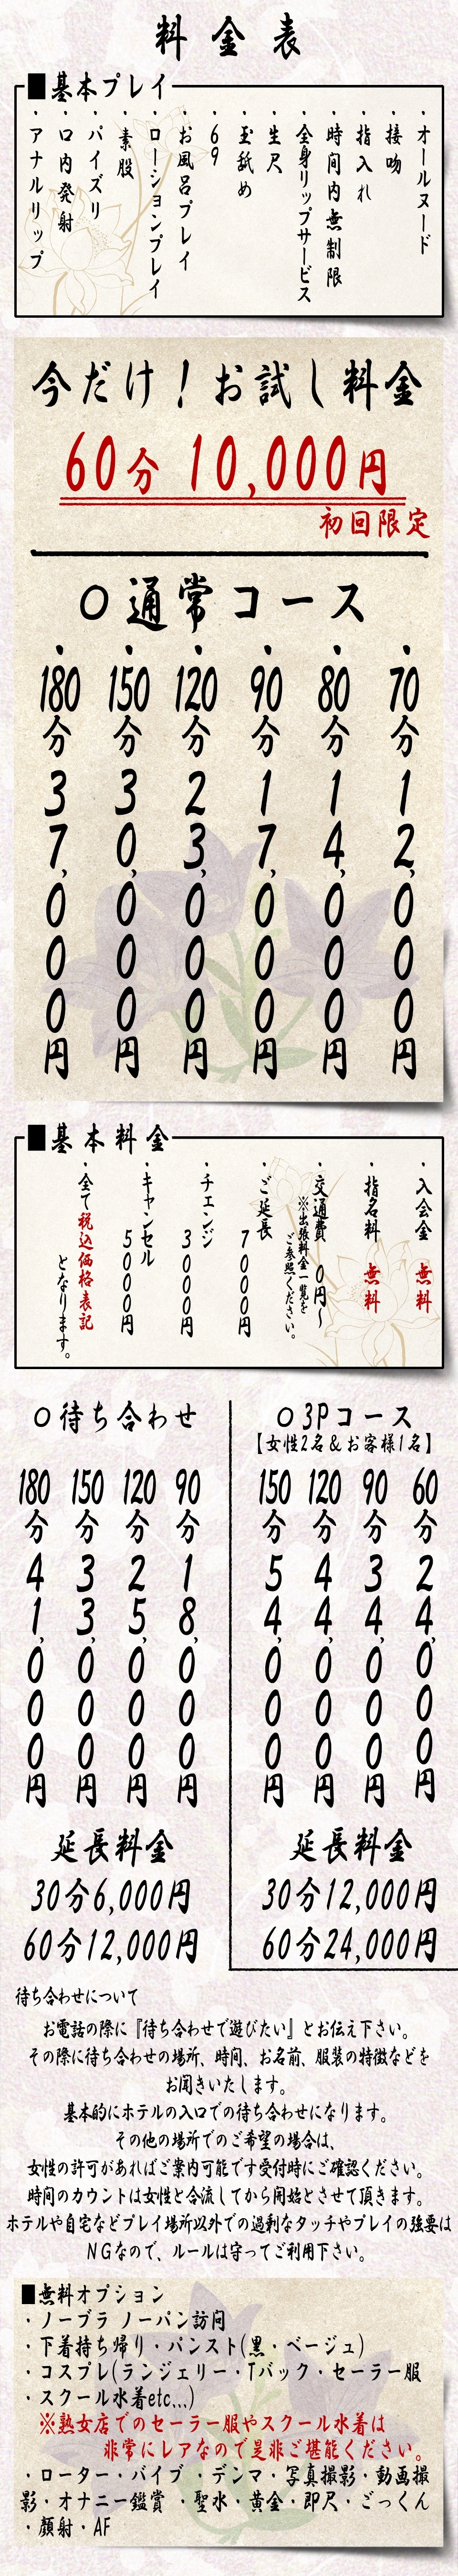 料金表
■基本プレイ
・オールヌード
・接吻
・指入れ
・時間内無制限
・全身リップサービス
・生尺
・玉舐め
・69
・お風呂プレイ
・ローションプレイ
・素股
・パイズリ
・口内発射
・アナルリップ
今だけ！お試し料金
60分 10,000円
初回限定
○通常コース
・70分 12,000円
・80分 14,000円
・90分 17,000円
・120分 23,000円
・150分 30,000円
・180分 37,000円
■基本料金
・入会金 無料
・指名料 無料
・交通費 0円～
※出張料金一覧を
ご参照ください。
・ご延長
7000円
・チェンジ
3000円
・キャンセル
5000円
・全て税込価格表記
となります。
○3Pコース
【女性2名＆お客様1名】
60分 24,000円
90分 34,000円
120分 44,000円
150分 54,000円
延長料金
30分12,000円
60分24,000円
○待ち合わせ
90分 18,000円
120分 25,000円
150分 33,000円
180分 41,000円
延長料金
30分6,000円
60分12,000円
待ち合わせについて
お電話の際に『待ち合わせで遊びたい』とお伝え下さい。
その際に待ち合わせの場所、時間、お名前、服装の特徴などを
お聞きいたします。
基本的にホテルの入口での待ち合わせになります。
その他の場所でのご希望の場合は、
女性の許可があればご案内可能です受付時にご確認ください。
時間のカウントは女性と合流してから開始とさせて頂きます。
ホテルや自宅などプレイ場所以外での過剰なタッチやプレイの強要は
ＮＧなので、ルールは守ってご利用下さい。
■無料オプション
・ノーブラ ノーパン訪問
・下着持ち帰り・パンスト(黒・ベージュ)
・コスプレ(ランジェリー・Tバック・セーラー服
・スクール水着etc...)
※熟女店でのセーラー服やスクール水着は
非常にレアなので是非ご堪能ください。
・ローター・バイブ ・デンマ・写真撮影・動画撮
影・オナニー鑑賞 ・聖水・黄金・即尺・ごっくん
・顔射・AF